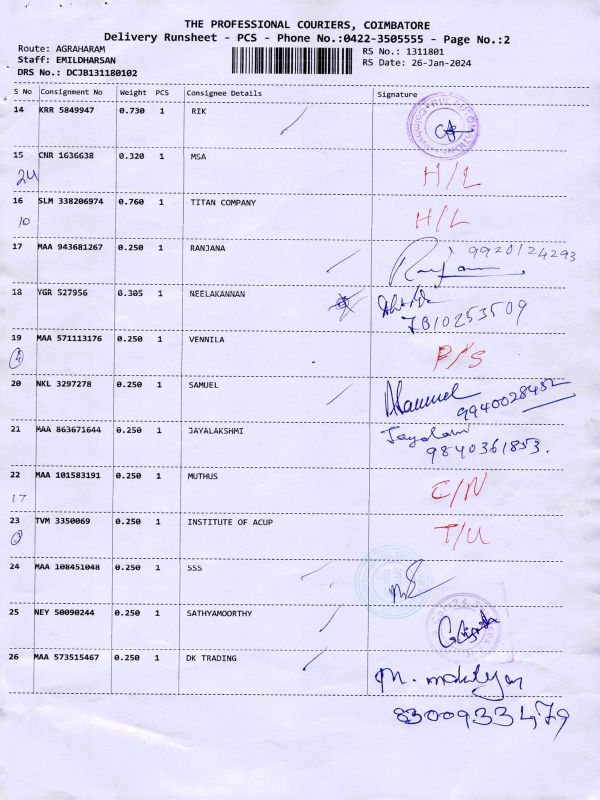 THE PROFESSIONAL COURIERS, COIMBATORE
Delivery Runsheet - PCS - Phone No.:0422-3505555 - Page No.:2
Route: AGRAHARAM
Staff: EMILDHARSAN
DRS No.: DCJB131180102
RS No.: 1311801
RS Date: 26-Jan-2024
S No Consignment No Weight PCS Consignee Details Signature
14 KRR 5849947 0.730 1 RIK
15 CNR 1636638 0.320 1 MSA H/L
24
16 SLM 338206974 0.760 1 TITAN COMPANY H/L
10
17 MAA 943681267 0.250 1 RANJANA 9920124293
18 YGR 527956 0.305 1 NEELAKANNAN
7810253509
19 MAA 571113176 0.250 1 VENNILA P/S
20 NKL 3297278 0.250 1 SAMUEL
9940028452
21 MAA 863671644 0.250 1 JAYALAKSHMI
9840361853.
22 MAA 101583191 0.250 1 MUTHUS
17
23 TVM 3350069 0.250 1 INSTITUTE OF ACUP T/U
24 MAA 108451048 0.250 1 SSS
25 NEY 50090244 0.250 1 SATHYAMOORTHY
26 MAA 573515467 0.250 1 DK TRADING
8300933479